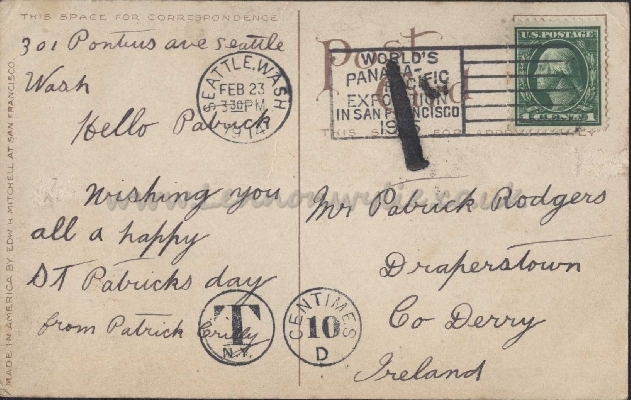 THIS SPACE FOR CORRESPONDENCE
301 Pontius ave Seattle
Wash
Hello Patrick
Wishing you
all a happy
ST Patricks day
from Patrick
MADE IN AMERICA BY EDW. H. MITCHELL AT SAN FRANCISCO.
SEATTLE, WASH.
FEB 23
3:30 PM
1914
T
N.Y.
CENTIMES
10
D
Post Card
WORLD'S
PANAMA-
PACIFIC
EXPOSITION
IN SAN FRANCISCO
THIS SPACE FOR
U.S. POSTAGE
1
Mr Patrick Rodgers
Draperstown
Co Derry
Ireland